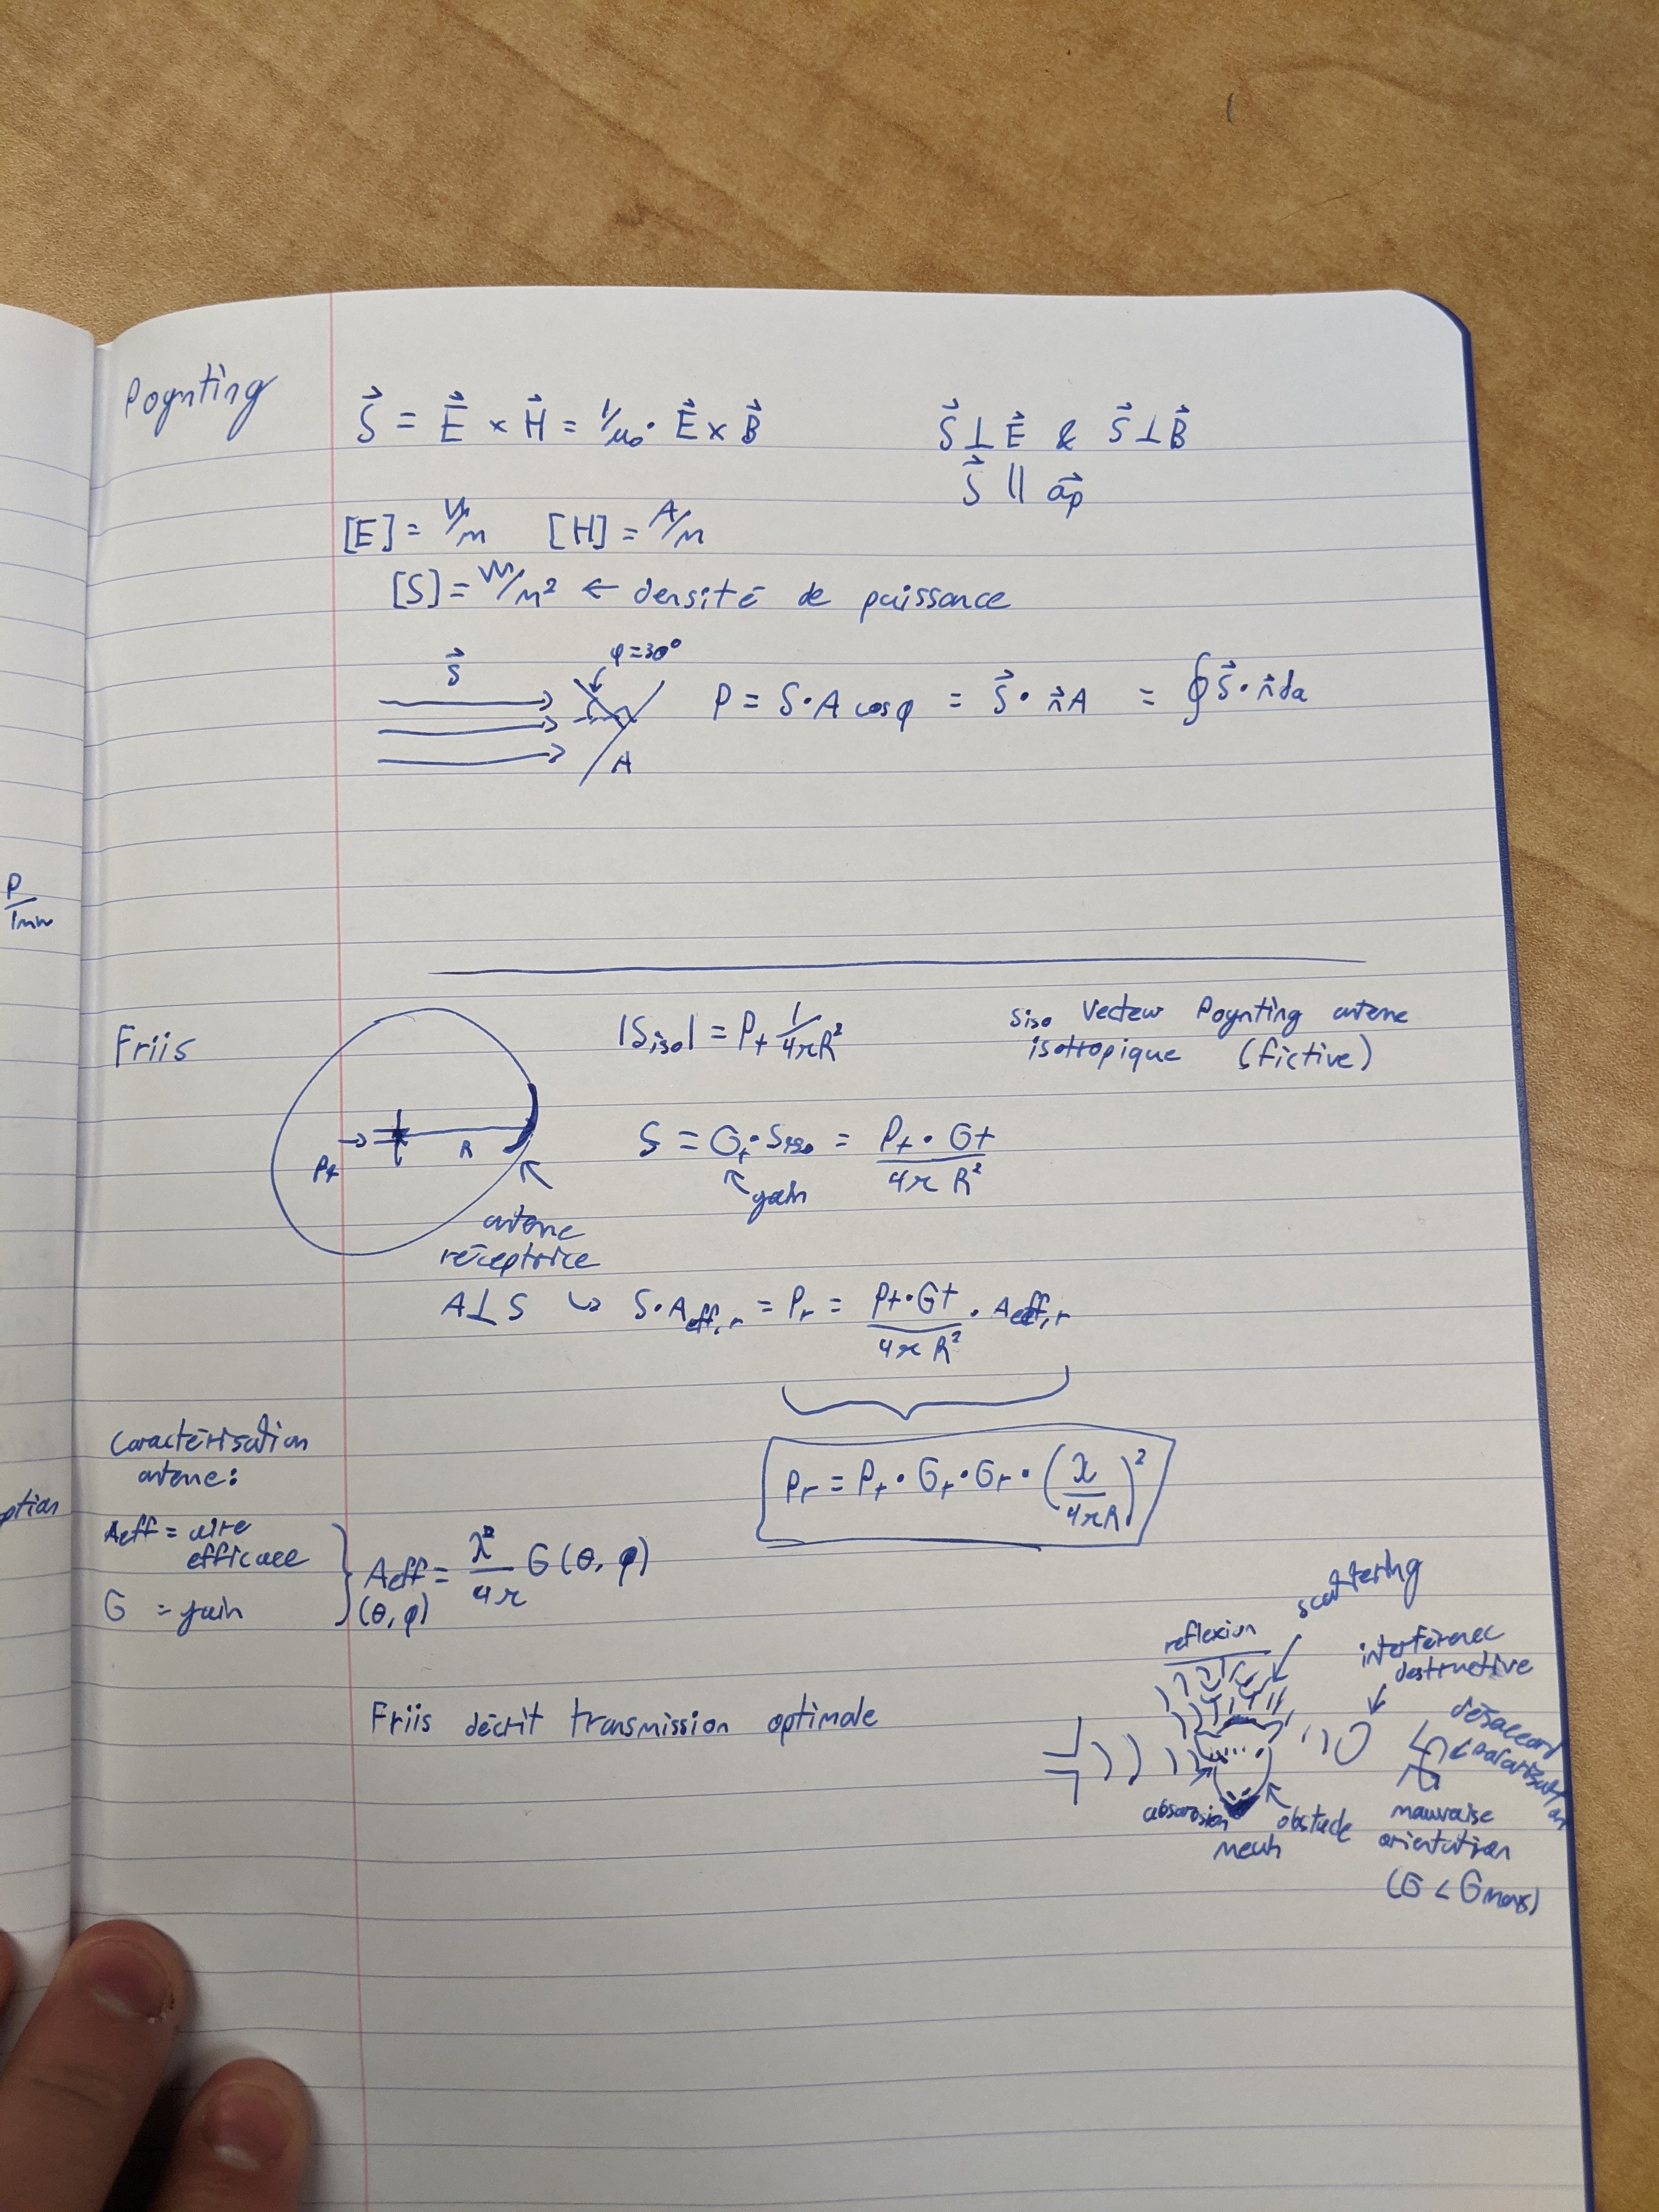 Poynting
S⃗ = E⃗ × H⃗ = 1/μ₀ · E⃗ × B⃗
S⃗ ⊥ E⃗ & S⃗ ⊥ B⃗
S⃗ || a⃗p
[E] = V/m [H] = A/m
[S] = W/m² ← densité de puissance
S⃗
φ=30°
A
P = S·A cosφ = S⃗ · n⃗A = ∮ S⃗ · n⃗da
P/1mW
Friis
|Siso| = Pt 1/4πR²
Siso Vecteur Poynting antene
isotropique (fictive)
Pt
R
S = Gt·Siso = Pt · Gt / 4π R²
gain
antene
réceptrice
A⊥S ↳ S·Aeff,r = Pr = Pt·Gt / 4π R² · Aeff,r
Pr = Pt · Gt · Gr · (λ / 4πR)²
Caractérisation
antene:
ption
Aeff = aire
efficace
G = gain
Aeff (θ, φ) = λ² / 4π G(θ, φ)
Friis décrit transmission optimale
reflexion
scattering
interférence
destructive
désaccord
polarisation
absorbsion
obstacle
meuh
mauvaise
orientation
(G < Gmax)